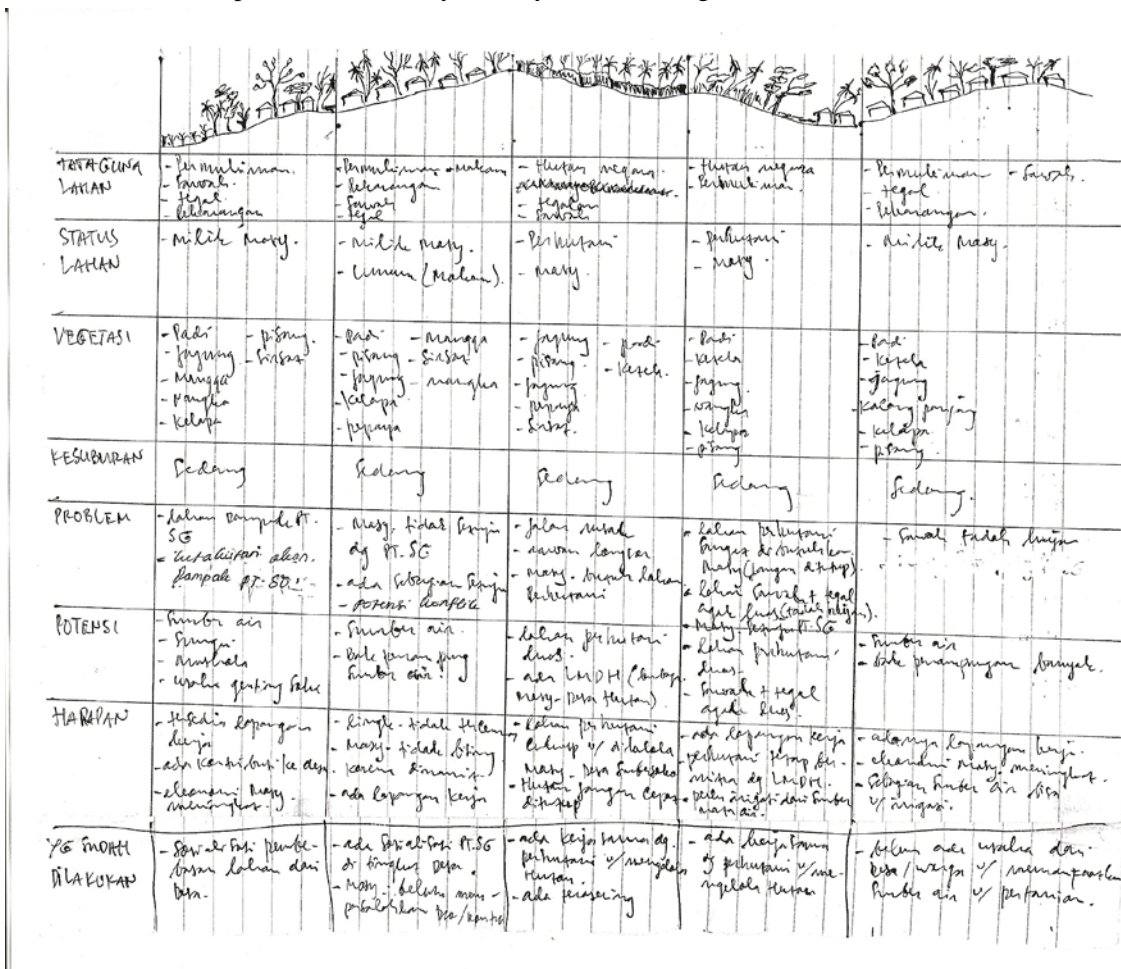 TATAGUNA LAHAN
- Permukiman.
- Sawah.
- tegal
- Pekarangan
- Permukiman - Makam
- Pekarangan
- Sawah
- tegal
- Hutan negara.
- tegalan
- Sawah
- Hutan negara
- Permukiman.
- Permukiman - Sawah.
- tegal
- Pekarangan.
STATUS LAHAN
- Milik Masy.
- Milik Masy.
- Umum (Makam).
- Perhutani
- Masy.
- Perhutani
- Masy.
- Milik Masy.
VEGETASI
- Padi - pisang.
- Jagung - Sirsat
- Mangga
- Nangka
- Kelapa
- Padi - Mangga
- pisang - Sirsat
- Jagung - nangka
- Kelapa
- pepaya
- Jagung - padi
- pisang - Ketela
- Jagung
- pepaya
- Sirsat.
- Padi
- Ketela
- Jagung
- nangka
- Kelapa
- pisang
- Padi
- Ketela
- Jagung
- Kacang panjang
- Kelapa
- pisang
KESUBURAN
Sedang
Sedang
Sedang
Sedang
Sedang.
PROBLEM
- lahan PT. SG
- akan dampak PT. SG!!
- Masy. tidak Setuju dg PT. SG
- ada Sebagian Setuju
- POTENSI konflik
- Jalan rusak
- rawan longsor
- Masy. butuh lahan Perhutani
- Lahan Perhutani Sangat dibutuhkan Masy (Jangan ditutup).
- Lahan Sawah + tegal agak luas (tadah hujan).
- Masy. Setuju PT. SG
- Sawah tadah hujan
POTENSI
- Sumber air
- Sungai
- Mushala
- usaha genting
- Sumber air.
- Bak penampung Sumber air!
- Lahan perhutani luas.
- ada LMDH (Lembaga Masy. Desa Hutan).
- Lahan perhutani luas.
- Sawah + tegal agak luas.
- Sumber air
- Bak penampungan banyak.
HARAPAN
- tersedia lapangan kerja
- ada kontribusi ke desa
- ekonomi Masy. meningkat.
- Lingk. tidak tercemar
- Masy. tidak bising karena dinamit)
- ada lapangan kerja
- Lahan perhutani cukup u/ dikelola Masy. Desa
- Hutan jangan cepat ditutup
- ada lapangan kerja
- perhutani tetap bermitra dg LMDH.
- perlu irigasi dari Sumber mata air.
- adanya lapangan kerja.
- ekonomi Masy. meningkat.
- Sebagian Sumber air bisa u/ irigasi.
YG SUDAH DILAKUKAN
- Sosialisasi pembebasan lahan dari Desa.
- ada Sosialisasi PT. SG di tingkat Desa.
- Masy. belum
- ada kerja sama dg. perhutani u/ mengelola Hutan.
- ada
- ada kerja sama dg perhutani u/ mengelola Hutan
- belum ada usaha dari Desa/warga u/ memanfaatkan Sumber air u/ pertanian.